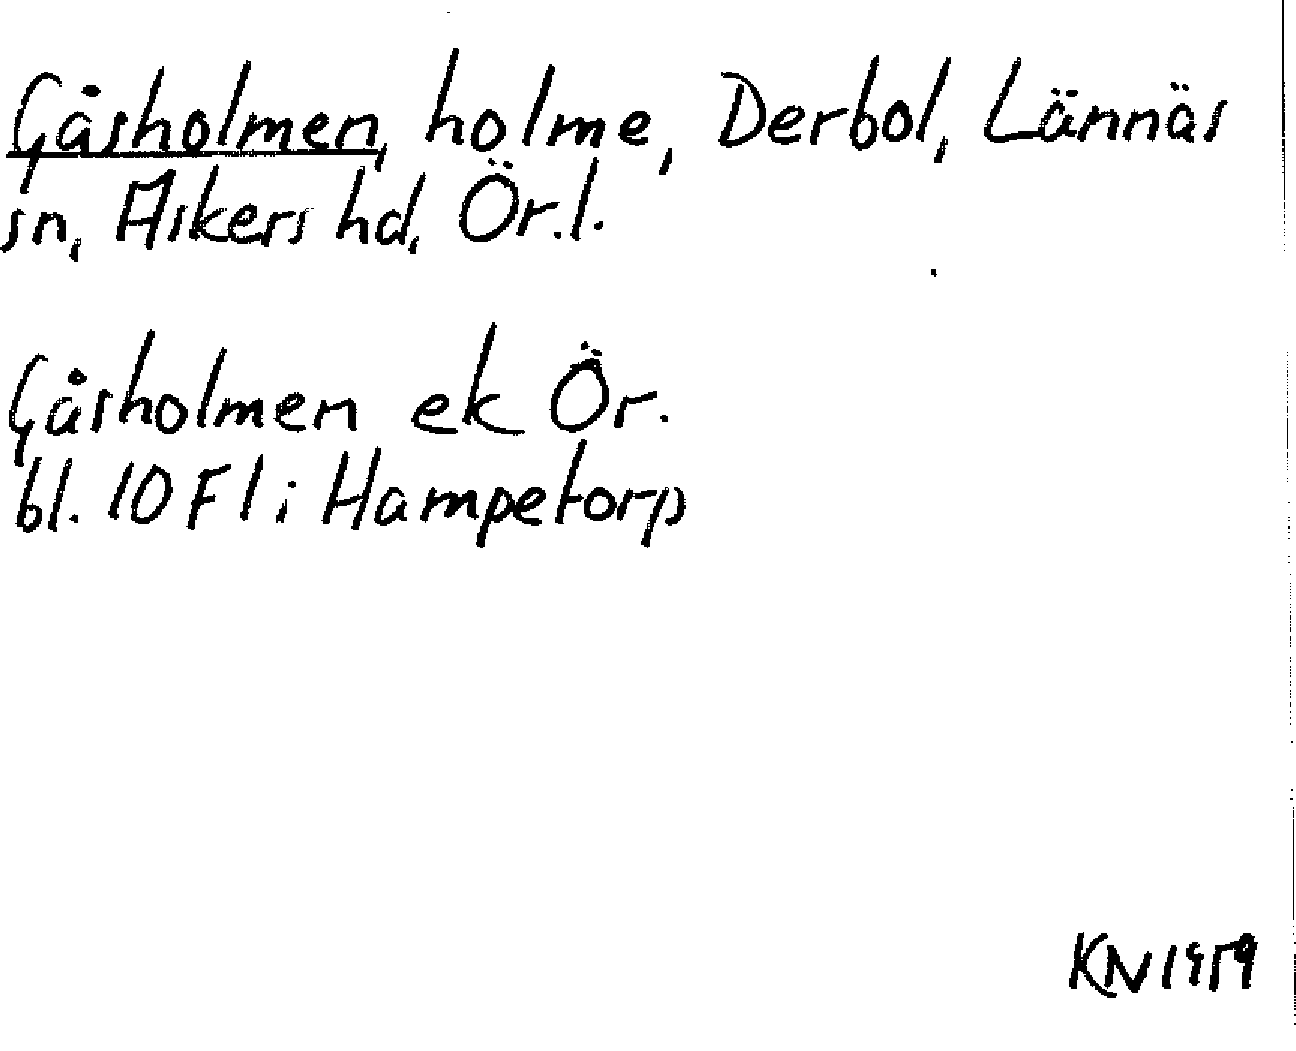 Gåsholmen, holme, Derbol, Lännäs
sn, Askers hd, Ör.l.
Gåsholmen ek Ör.
bl. 10 F1i Hampetorp
KN 1959